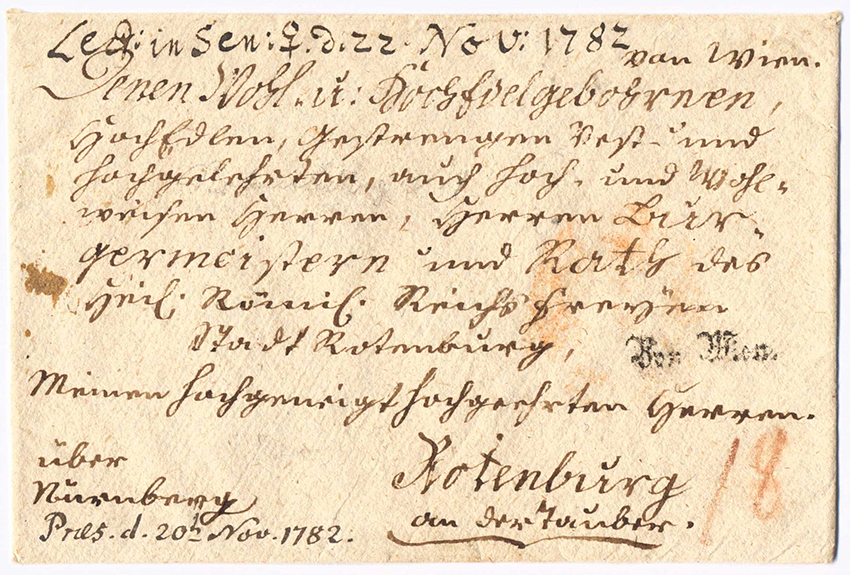 Lect: in Sen: ♀. d. 22. Nov: 1782
von Wien.
Denen Wohl- u: Hochedelgebohrnen,
HochEdlen, Gestrengen Vest- und
Hochgelehrten, auch Hoch- und Wohl-
weisen Herren, Herren Bur-
germeistern und Rath des
Heil: Römis: Reichs Freÿen
Stadt Rotenburg,
Von Wien.
Meinen Hochgeneigt Hochgeehrten Herren.
über
Nürnberg
Rotenburg
an der Tauber.
Præs. d. 20t Nov. 1782.
18